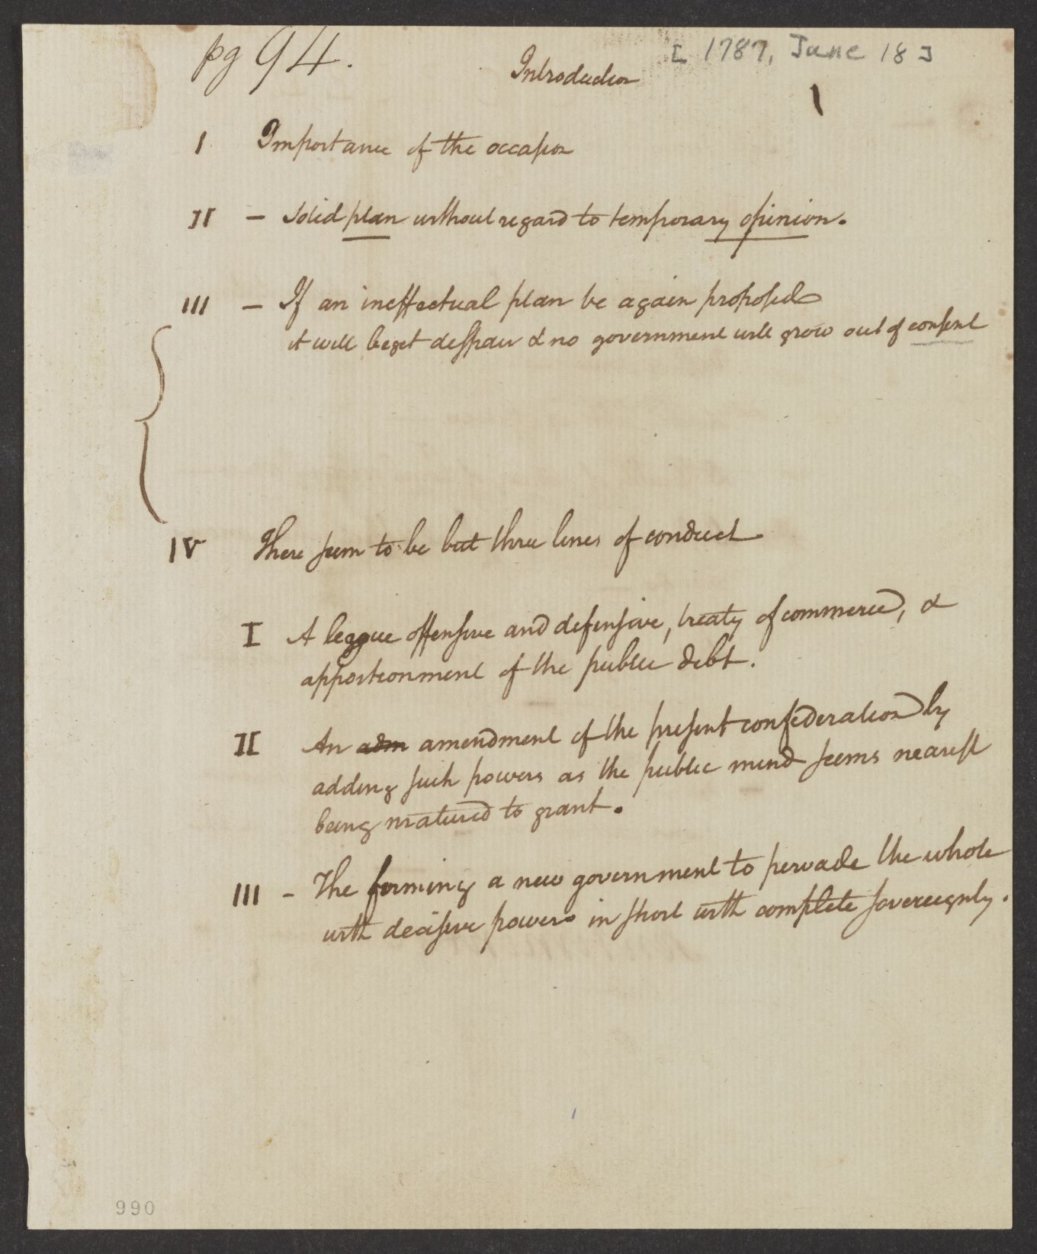 pg 94.
[ 1787, June 18 ]
Introduction
1
I Importance of the occasion
II — Solid plan without regard to temporary opinion.
III — If an ineffectual plan be again proposed
it will beget despair & no government will grow out of consent
IV There seem to be but three lines of conduct
I A league offensive and defensive, treaty of commerce, &
apportionment of the public debt.
II An adm amendment of the present confederation by
adding such powers as the public mind seems nearest
being matured to grant.
III — The forming a new government to pervade the whole
with decisive powers in short with complete sovereignty.
990